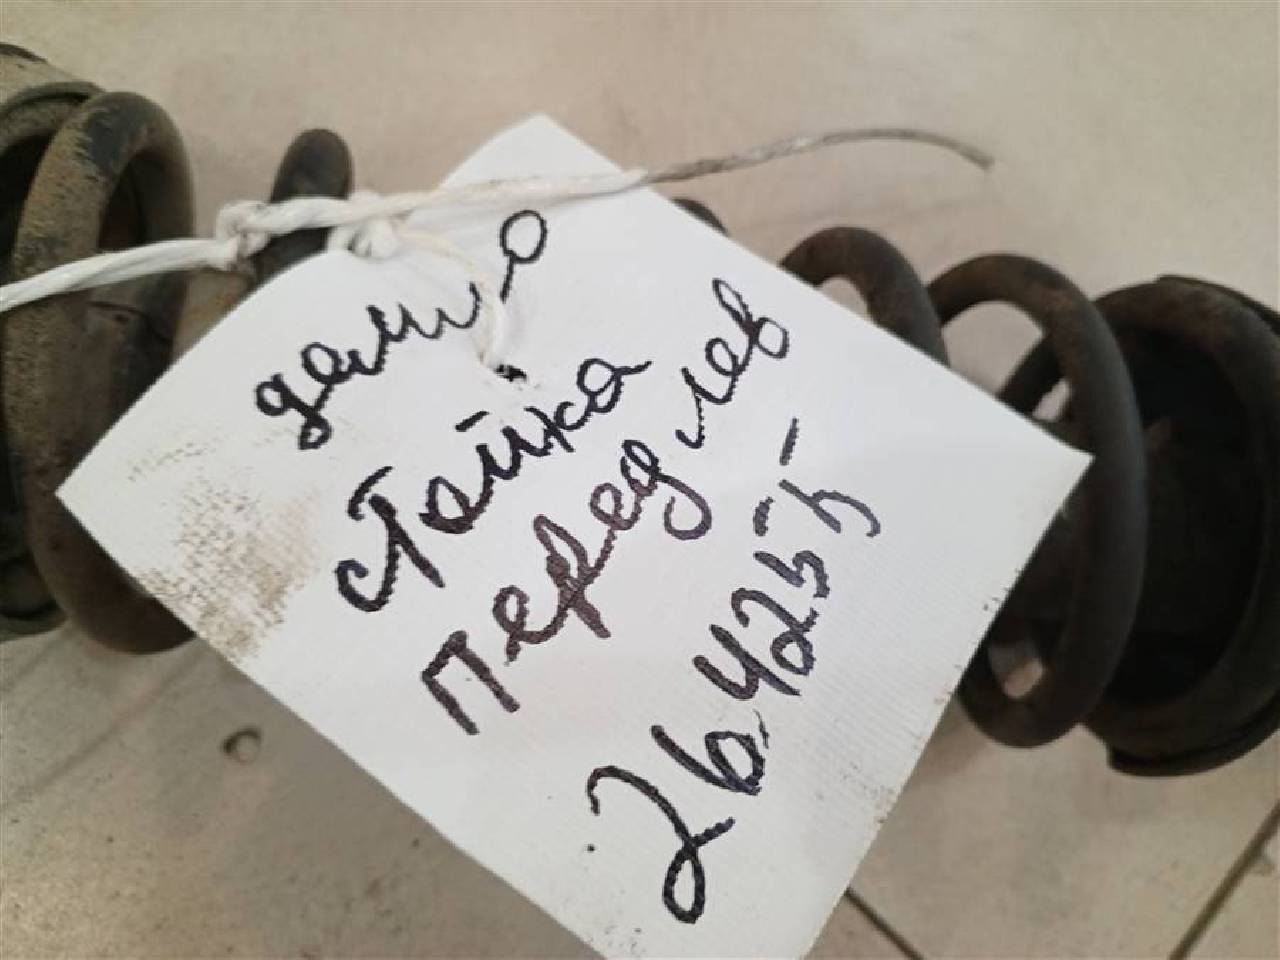 демио
стойка
перед лев
264255